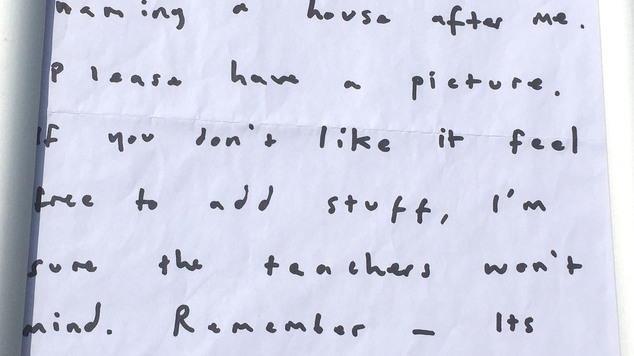 naming a house after me.
Please have a picture.
If you don't like it feel
free to add stuff, I'm
sure the teachers won't
mind. Remember – Its